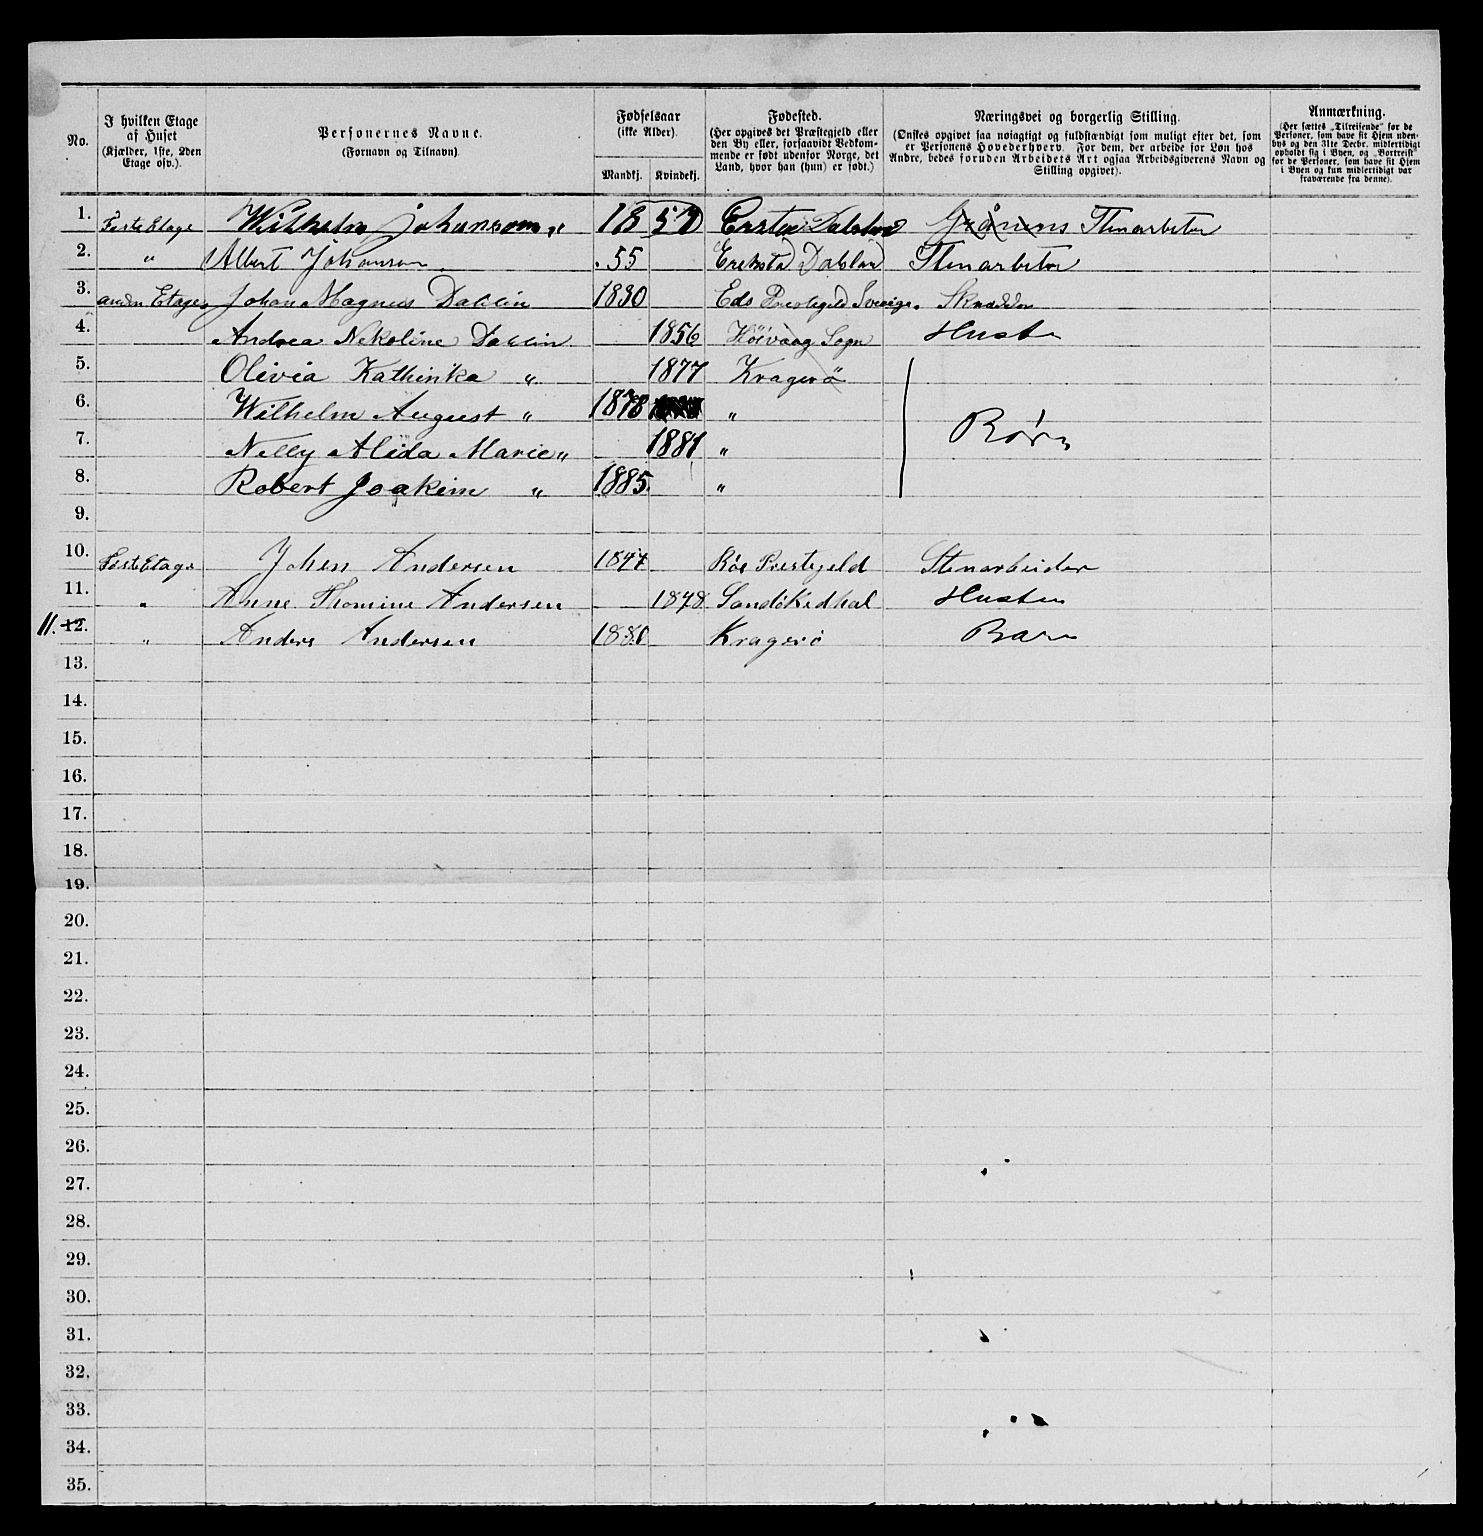 No.
I hvilken Etage af Huset (Kjælder, 1ste, 2den Etage osv.).
Personernes Navne. (Fornavn og Tilnavn).
Fødselsaar (ikke Alder). Mandkj. Kvindekj.
Fødested. (Her opgives det Præstegjeld eller den By eller, forsaavidt Vedkommende er født udenfor Norge, det Land, hvor han (hun) er født.)
Næringsvei og borgerlig Stilling. (Ønskes opgivet saa nøiagtigt og fuldstændigt som muligt efter det, som er Personens Hovederhverv. For dem, der arbeide for Løn hos Andre, bedes foruden Arbeidets Art ogsaa Arbeidsgiverens Navn og Stilling opgivet).
Anmærkning. (Her sættes „Tilreisende“ for de Personer, som have sit Hjem udenbys og den 31te Decbr. midlertidigt opholdt sig i Byen, og „Bortreist“ for de Personer, som have sit Hjem i Byen og kun midlertidigt var fraværende fra denne).
1. Første Etage Wilhelm Johanson 1857 Stenarbeter
2. " Albert Johanson 55 Stenarbeter
3. anden Etage Johan Magnus Dahlin 1830 Eds Prestegeld Sverige. Skrædder
4. Andrea Nekoline Dahlin 1856 Høivaag Sogn Hustr
5. Olivia Kathinka " 1877 Kragerø
6. Wilhelm August " 1878 "
7. Nelly Alida Marie " 1881 " Børn
8. Robert Joakim " 1885. "
9.
10. Første Etage Johen Andersen 1847 Prestegeld Stenarbeider
11. " Anne Thomine Andersen 1848 Sandøkedhal Hustru
11. 12. " Anders Andersen 1880 Kragerø Barn
13.
14.
15.
16.
17.
18.
19.
20.
21.
22.
23.
24.
25.
26.
27.
28.
29.
30.
31.
32.
33.
34.
35.